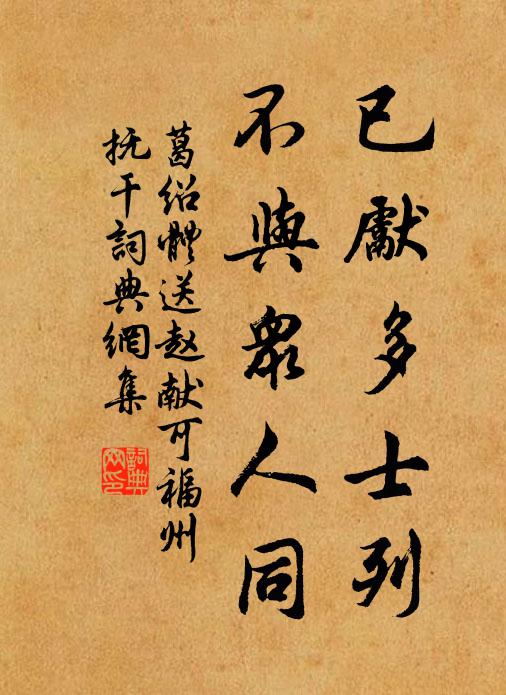 已獻多士列
不與眾人同
葛绍體送赵献可福州
抚干詞典網集
詞典
网印